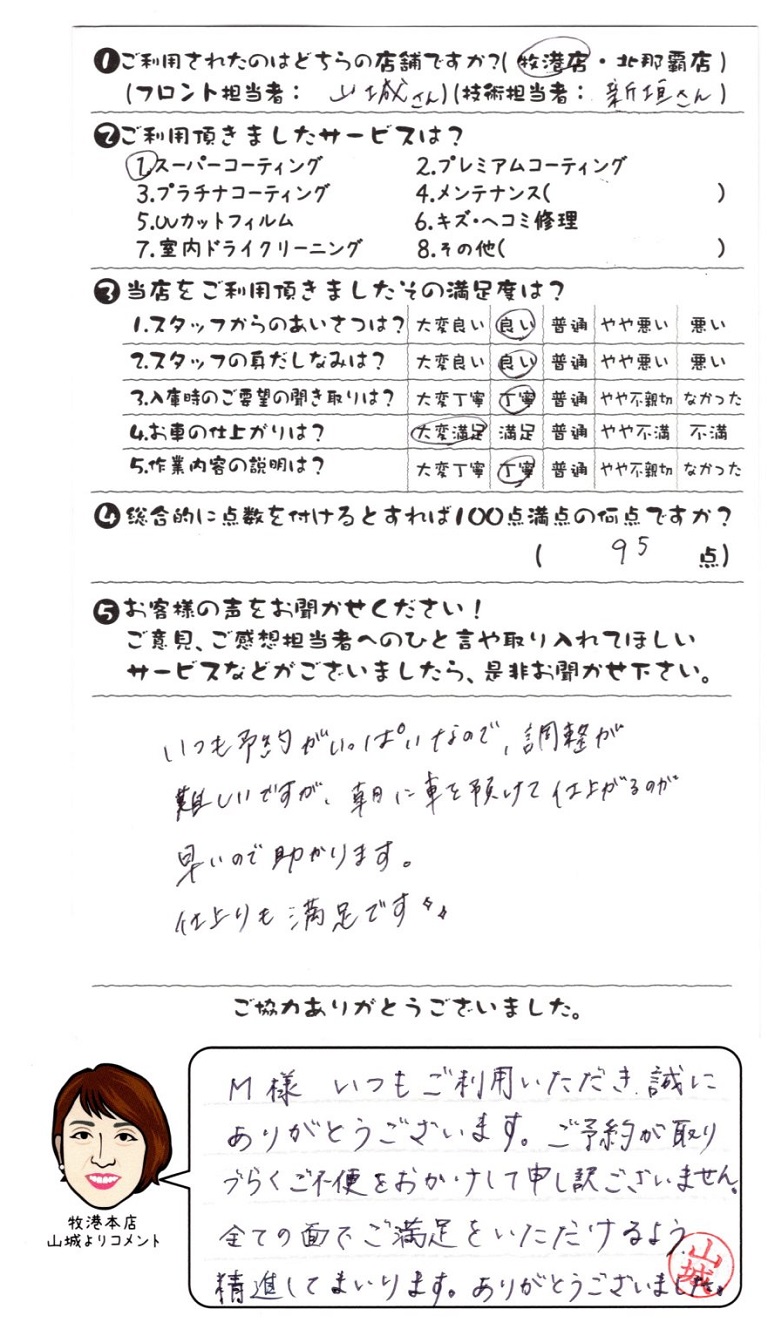 ❶ご利用されたのはどちらの店舗ですか?(牧港店・北那覇店)
(フロント担当者： 山城さん)(技術担当者： 新垣さん)
❷ご利用頂きましたサービスは?
1.スーパーコーティング 2.プレミアムコーティング
3.プラチナコーティング 4.メンテナンス( )
5.UVカットフィルム 6.キズ・ヘコミ修理
7.室内ドライクリーニング 8.その他( )
❸当店をご利用頂きましたその満足度は?
1.スタッフからのあいさつは? 大変良い 良い 普通 やや悪い 悪い
2.スタッフの身だしなみは? 大変良い 良い 普通 やや悪い 悪い
3.入庫時のご要望の聞き取りは? 大変丁寧 丁寧 普通 やや不親切 なかった
4.お車の仕上がりは? 大変満足 満足 普通 やや不満 不満
5.作業内容の説明は? 大変丁寧 丁寧 普通 やや不親切 なかった
❹総合的に点数を付けるとすれば100点満点の何点ですか?
( 95 点)
❺お客様の声をお聞かせください!
ご意見、ご感想担当者へのひと言や取り入れてほしい
サービスなどがございましたら、是非お聞かせ下さい。
いつも予約がいっぱいなので、調整が
難しいですが、朝に車を預けて仕上がるのが
早いので助かります。
仕上りも満足です
ご協力ありがとうございました。
M様 いつもご利用いただき、誠に
ありがとうございます。ご予約が取り
づらくご不便をおかけして申し訳ございません。
全ての面でご満足をいただけるよう
精進してまいります。ありがとうございました。
山城
牧港本店
山城よりコメント